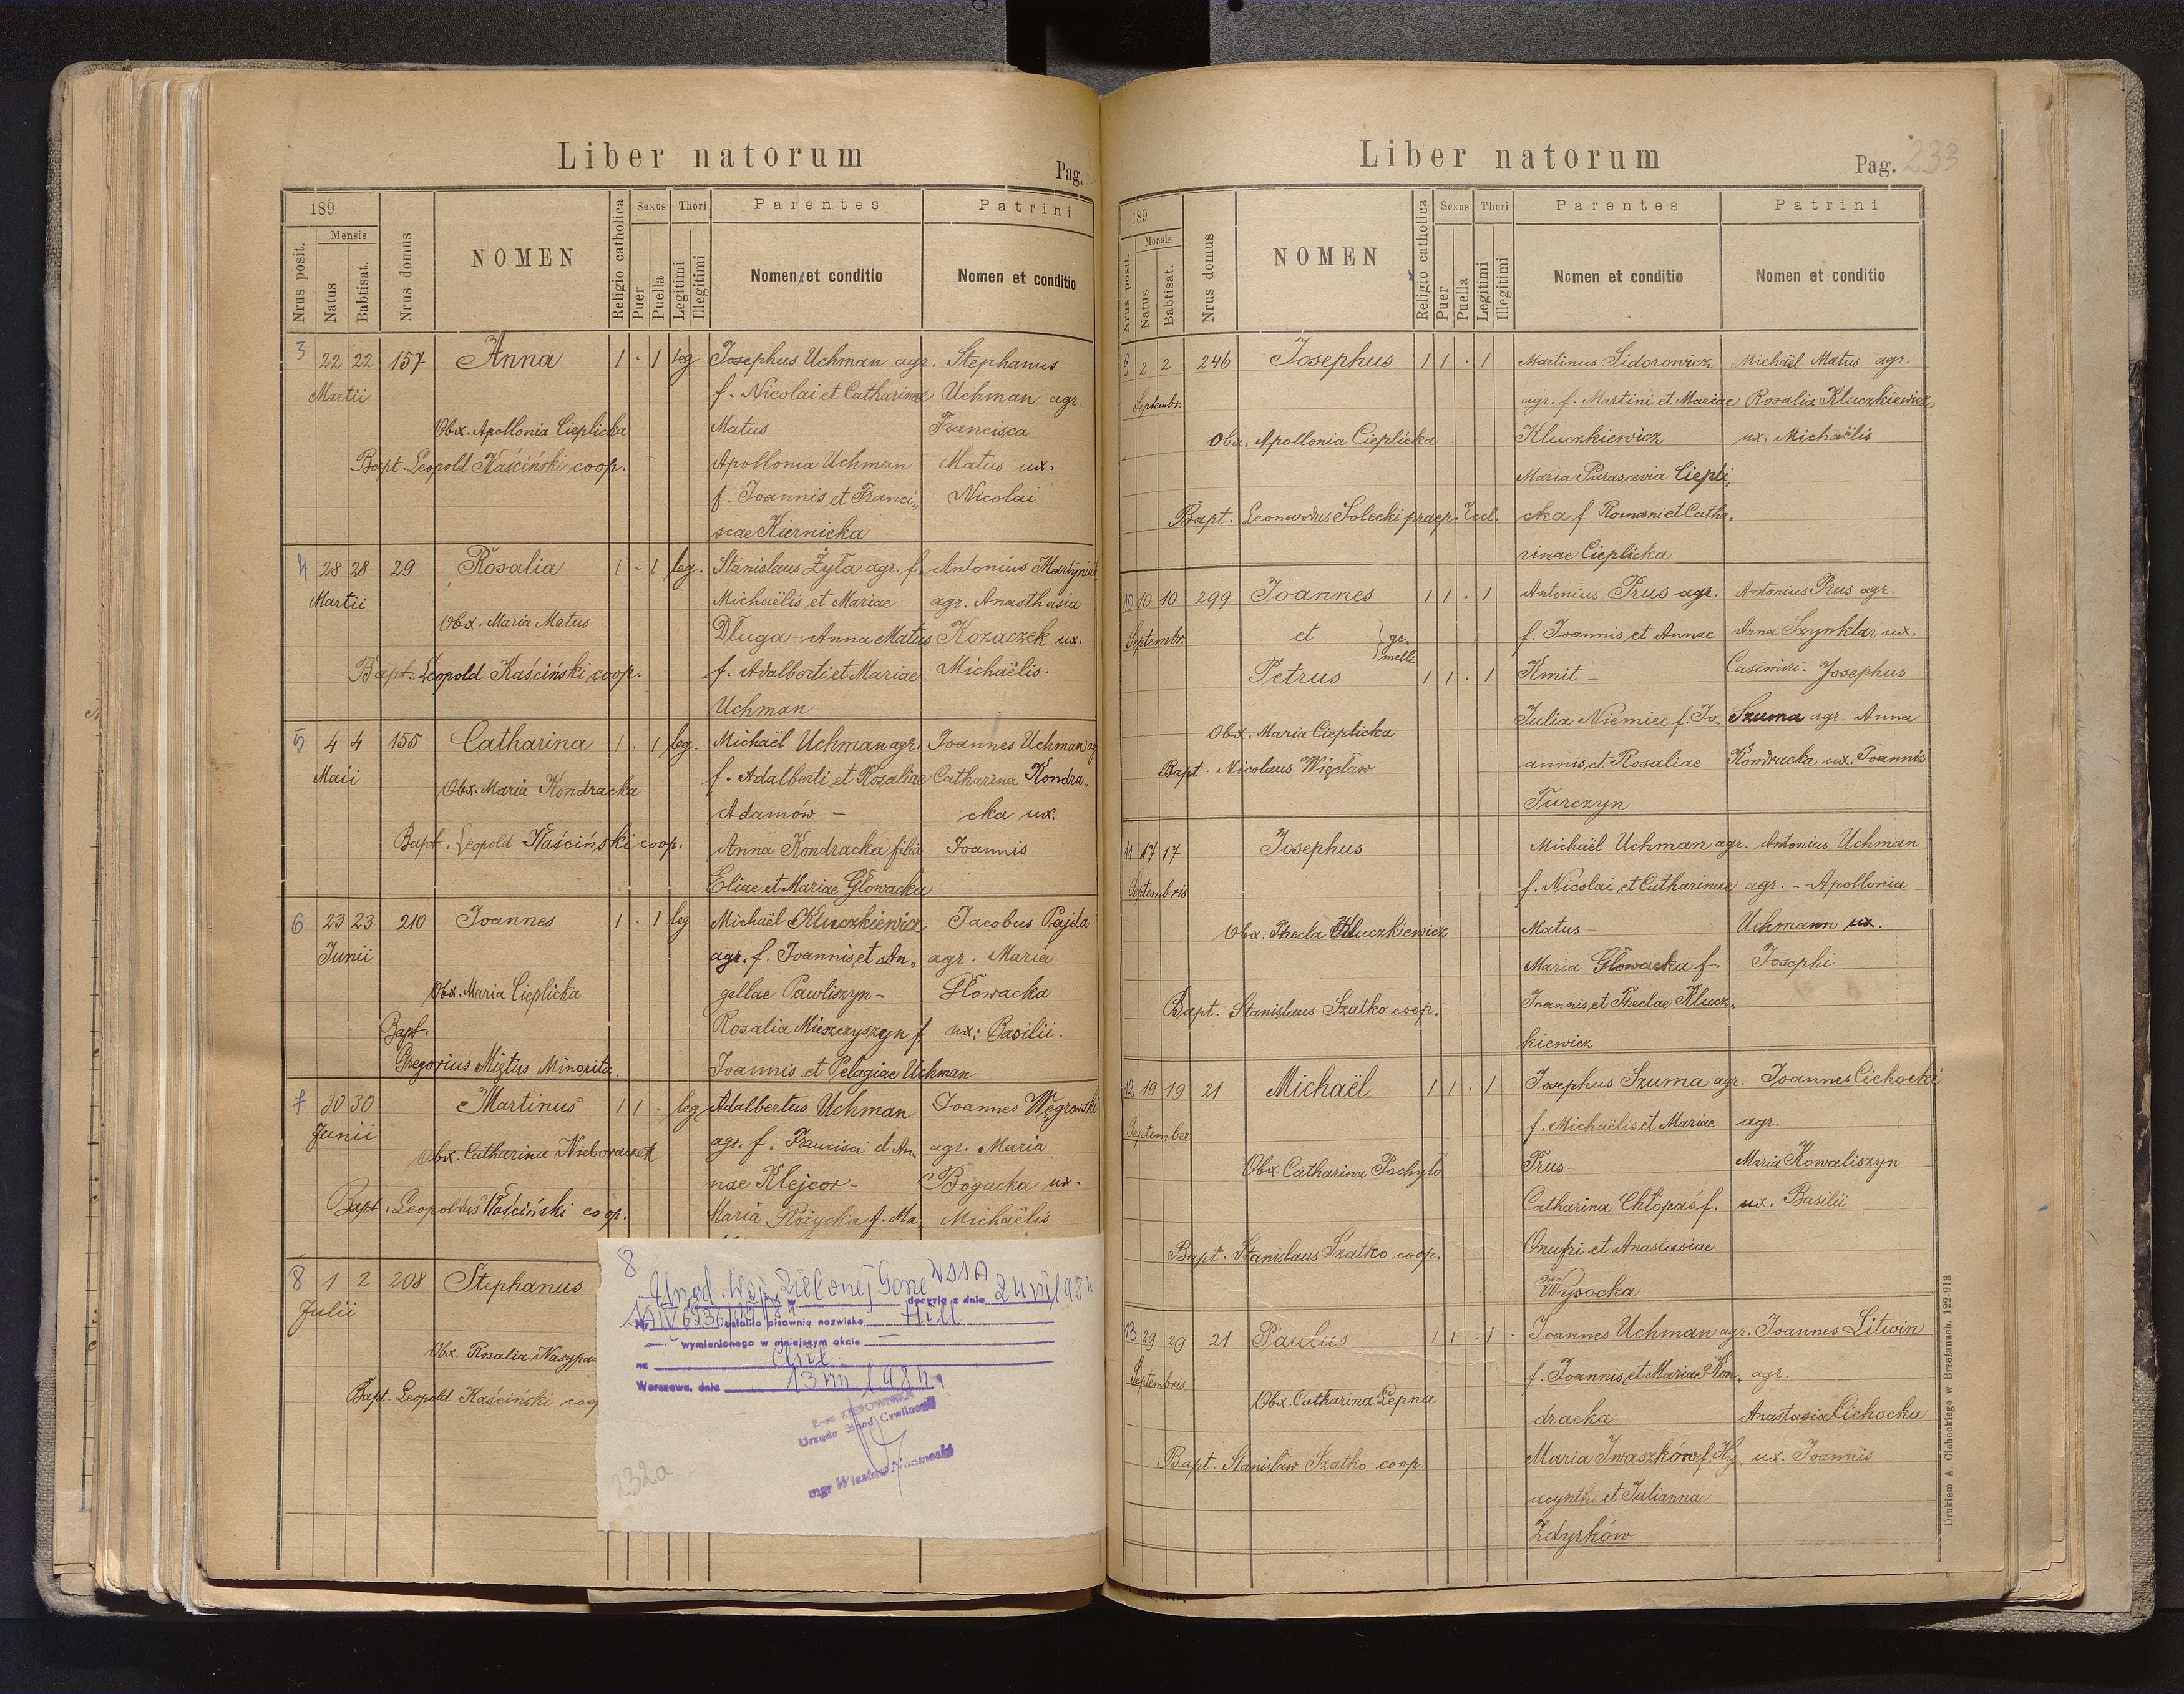 Liber natorum
Pag.
189
Mensis
Nrus posit.
Natus
Babtisat.
Nrus domus
NOMEN
Religio catholica
Sexus
Puer
Puella
Thori
Legitimi
Illegitimi
Parentes
Nomen et conditio
Patrini
Nomen et conditio
3 22 22 157 Anna 1 · 1 leg Josephus Uchman agr. Stephanus
Martii f. Nicolai et Catharinae Uchman agr.
Obx. Apollonia Cieplicka Matus Francisca
Bapt. Leopold Kaściński coop. Apollonia Uchman Matus ux.
f. Joannis et Franci„ Nicolai
scae Kiernicka
4 28 28 29 Rosalia 1 - 1 leg. Stanislaus Żyła agr. f. Antonius
Martii Michaëlis et Mariae agr. Anasthasia
Obx. Maria Matus Długa - Anna Matus Kozaczek ux.
Bapt. Leopold Kaściński coop. f. Adalberti et Mariae Michaëlis.
Uchman
5 4 4 155 Catharina 1 . 1 leg. Michaël Uchman agr. Joannes Uchman ag
Maii f. Adalberti et Rosaliae Catharina Kondra„
Obx. Maria Kondracka Adamów - cka ux.
Bapt. Leopold Kaściński coop. Anna Kondracka filia Joannis
Eliae et Mariae Głowacka
6 23 23 210 Joannes 1 · 1 leg Michaël Kluczkiewicz Jacobus Pajda
Junii agr. f. Joannis et An„ agr. Maria
Obx. Maria Cieplicka gellae Pawliszyn - Głowacka
Bapt. Rosalia Mieszczyszyn f. ux: Basilii.
Gregorius Miętus Minorita. Joannis et Pelagiae Uchman
7 30 30 Martinus 1 1 · leg Adalbertus Uchman Joannes Węgrowski
Junii agr. f. Francisci et An„ agr. Maria
Obx. Catharina Nieboraczek nae Klejcor - Bogucka ux.
Bapt. Leopoldus Kaściński coop. Maria Różycka f. Ma„ Michaëlis
8 1 2 208 Stephanus
Julii
Obx. Rosalia
Bapt. Leopold Kaściński coop
8
Urząd. Woj. w Zielonej Górze WSSA decyzją z dnia
Nr ustalił pisownię nazwiska Hill
wymienionego w niniejszym akcie
na
Warszawa, dnia 13 VIII 1984
Z-ca KIEROWNIKA
Urzędu Stanu Cywilnego
mgr Wiesław
232a
Liber natorum
Pag. 233
189
Mensis
Nrus posit.
Natus
Babtisat.
Nrus domus
NOMEN
Religio catholica
Sexus
Puer
Puella
Thori
Legitimi
Illegitimi
Parentes
Nomen et conditio
Patrini
Nomen et conditio
9 2 2 246 Josephus 1 1 · 1 Martinus Sidorowicz Michaël Matus agr.
Septembr. agr. f. Martini et Mariae Rosalia Kluczkiewicz
Obx. Apollonia Cieplicka Kluczkiewicz ux. Michaëlis
Maria Parascevia Ciepli„
Bapt. Leonardus Solecki praep. Eccl. cka f. Romani et Catha„
rinae Cieplicka
10 10 10 299 Joannes 1 1 · 1 Antonius Prus agr. Antonius Prus agr.
Septembr. et ge„ f. Joannis et Annae Anna Szynklar ux.
melli
Petrus 1 1 · 1 Kmit - Casimiri - Josephus
Julia Niemiec f. Jo„ Szuma agr. Anna
Obx. Maria Cieplicka annis et Rosaliae Kondracka ux. Joannis
Bapt. Nicolaus Więcław Turczyn
11 17 17 Josephus Michaël Uchman agr. Antonius Uchman
Septembris f. Nicolai et Catharinae agr. - Apollonia
Obx. Thecla Kluczkiewicz Matus Uchmann ux.
Maria Głowacka f. Josephi
Bapt. Stanislaus Szatko coop. Joannis et Theclae Klucz„
kiewicz
12 19 19 21 Michaël 1 1 · 1 Josephus Szuma agr. Joannes Cichocki
September f. Michaëlis et Mariae agr.
Obx. Catharina Pochyło Prus Maria Kowaliszyn
Catharina Chłopaś f. ux. Basilii
Bapt. Stanislaus Szatko coop. Onufri et Anastasiae
Wysocka
13 29 29 21 Paulus 1 1 · 1 · Joannes Uchman agr. Joannes Litwin
Septembris f. Joannis et Mariae Kon„ agr.
Obx. Catharina Lepna dracka Anastasia Cichocka
Bapt. Stanisław Szatko coop. Maria Iwaszków f. Hy„ ux. Joannis
acynthi et Julianna
Zdyrków
Drukiem A. Cichockiego w Brzeżanach. 122-913